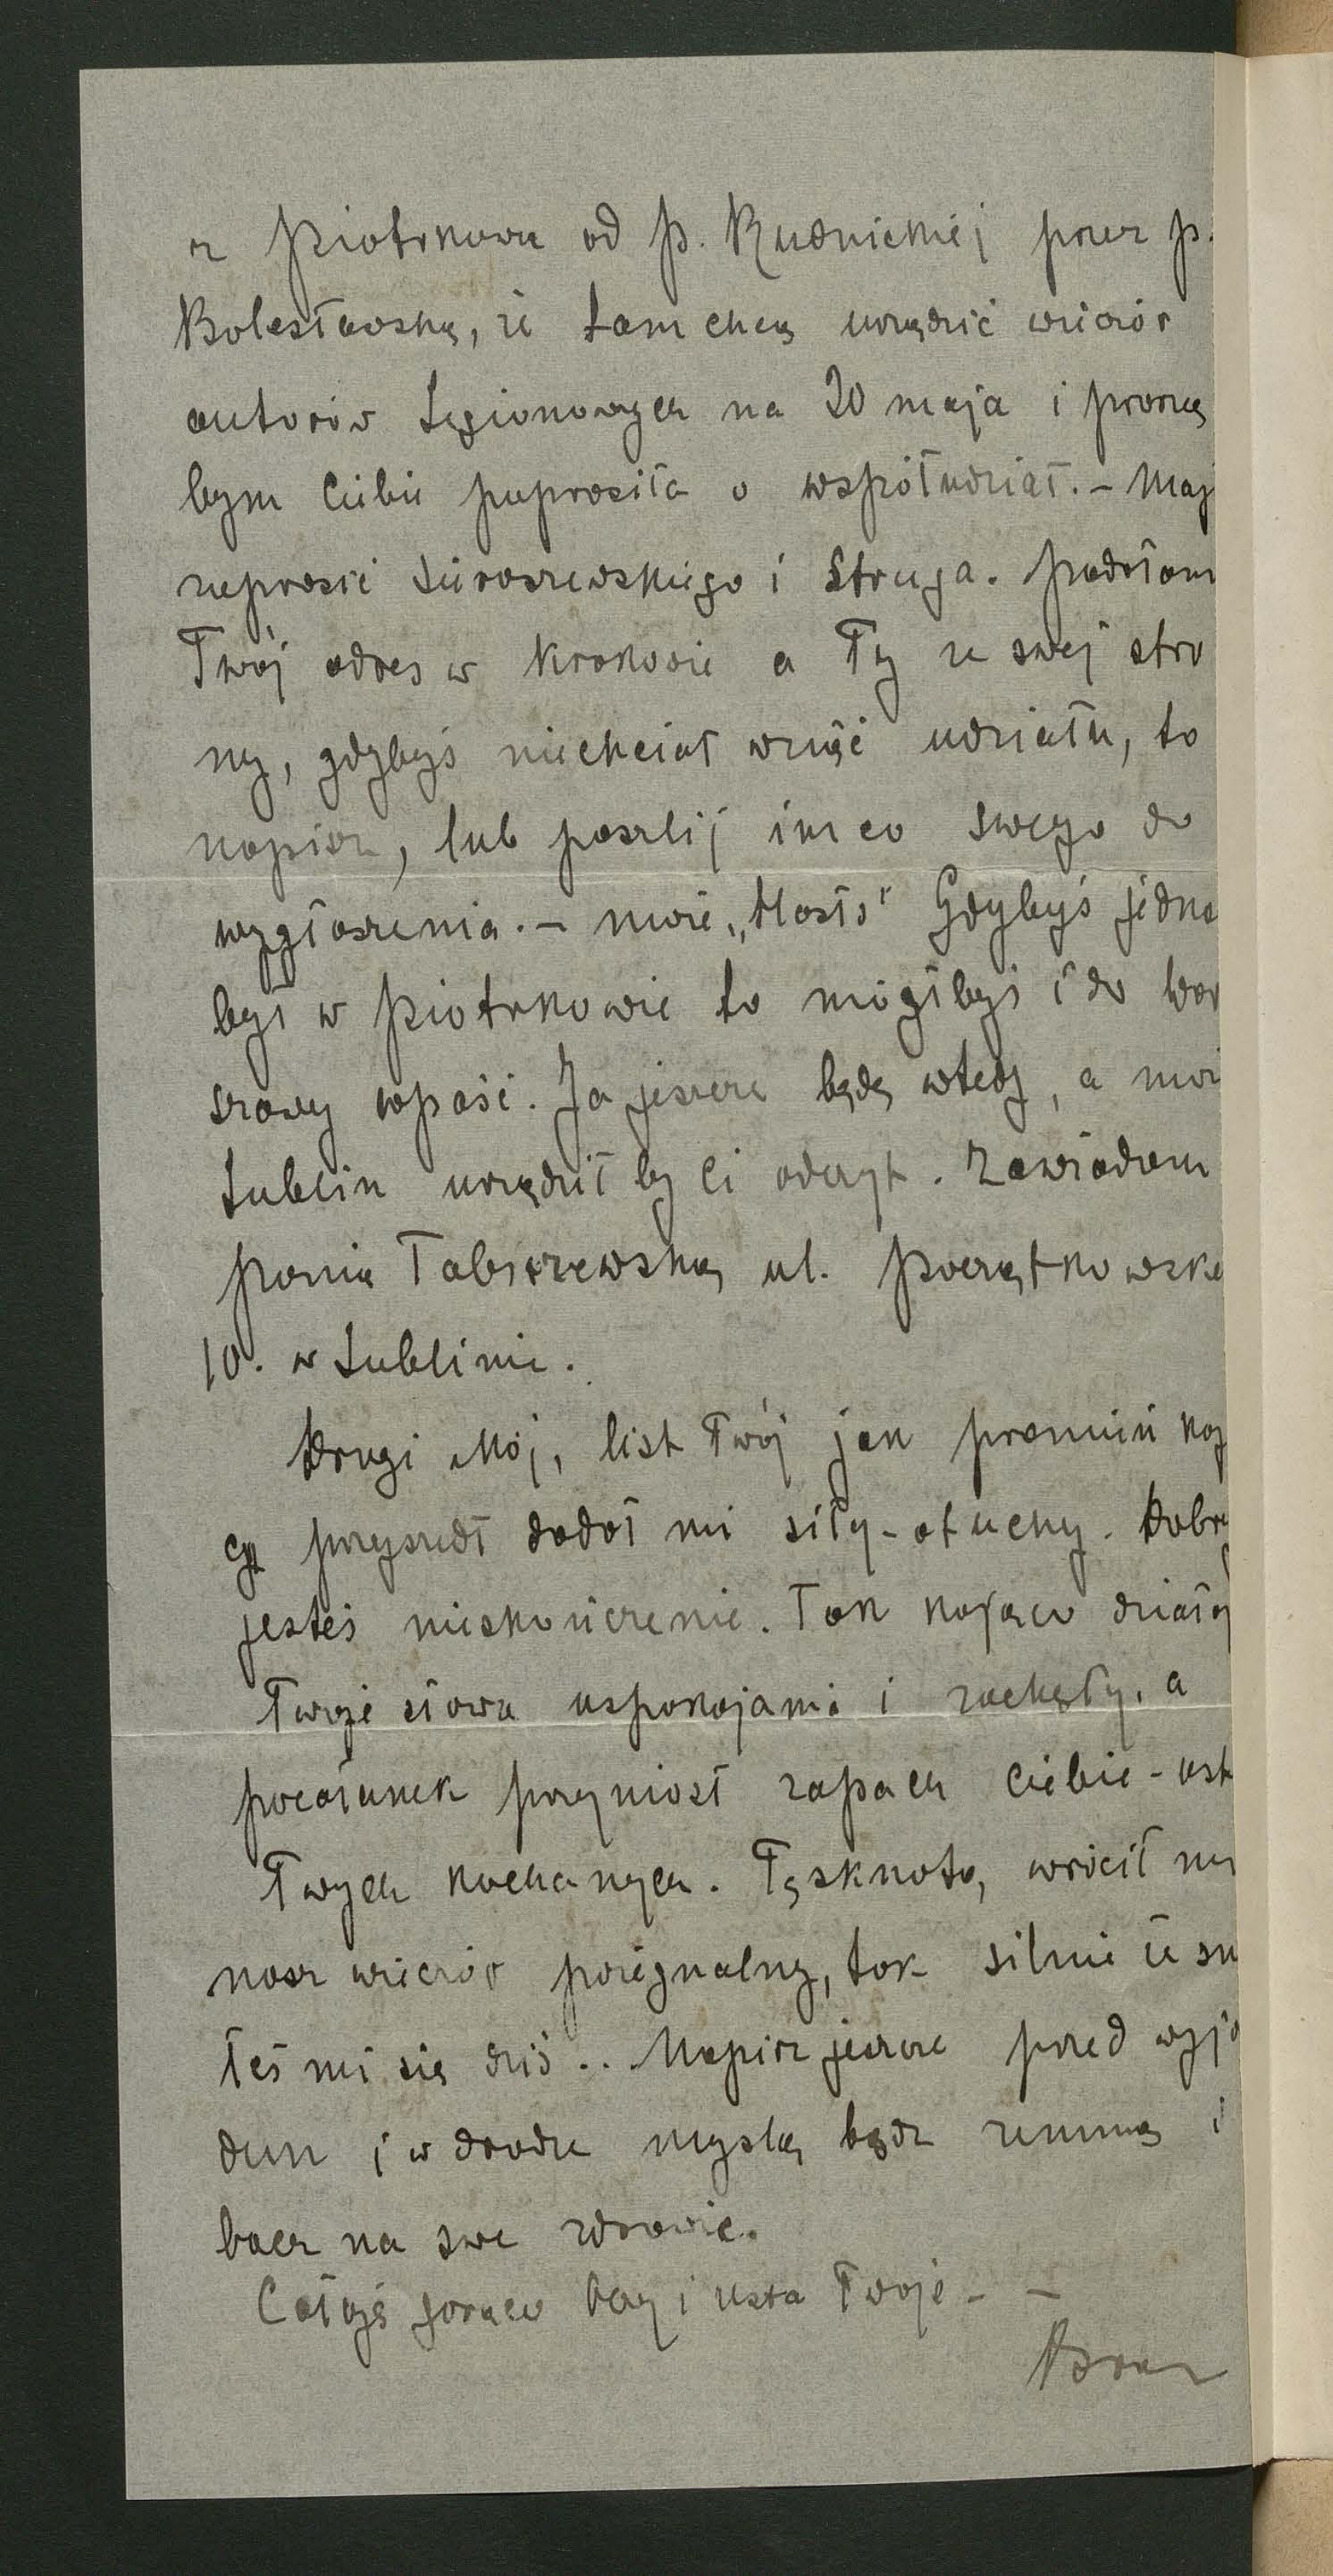 z Piotrkowa od p. Rudnickiej przez p.
Bolesławską, że tam chcą urządzić wieczór
autorów Legionowych na 20 maja i proszą
bym Ciebie poprosiła o współudział. – Mają
zaprosić Sieroszewskiego i Struga. Podałam
Twój adres w Krakowie a Ty ze swej stro
ny, gdybyś niechciał wziąć udziału, to
napisz, lub poszlij im co swego do
wygłoszenia. – może „Hasło" Gdybyś jedna
był w Piotrkowie to mógłbyś i do War
szawy wpaść. Ja jeszcze będę wtedy, a może
Lublin urządził by Ci odczyt. Zawiadom
panią Tabiszewską ul. Początkowska
10. w Lublinie.
Drogi Mój, list Twój jak promień koją
cy przyszedł dodał mi siły - otuchy. Dobry
jesteś nieskończenie. Tak kojąco działają
Twoje słowa uspokojania i zachęty, a
pocałunek przyniósł zapach Ciebie - ust
Twych kochanych. Tęsknotą, wrócił my
nasz wieczór pożegnalny, tak silnie że śni
łeś mi się dziś .. Napisz jeszcze przed wyja
dem i w drodze myślą bądź ze mną i
bacz na swe zdrowie.
Całuję gorąco oczy i usta Twoje - –